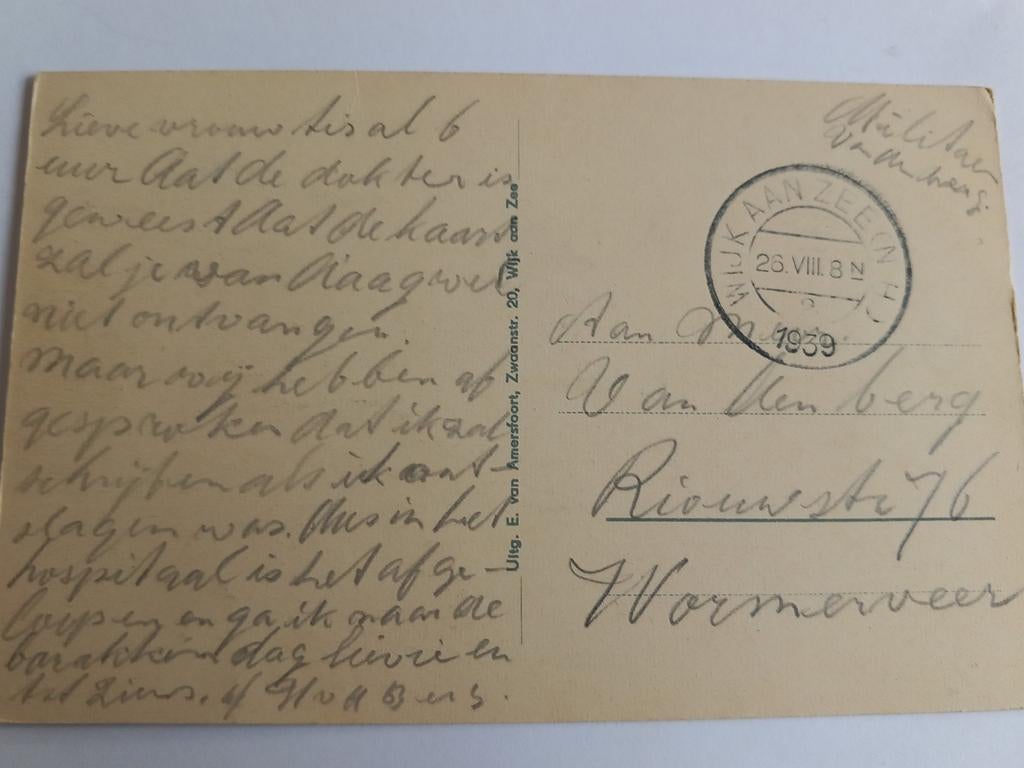 Lieve vrouw tis al 6
uur Aat de dokter is
geweest dat de kaart
zal je van daag wel
niet ontvangen.
maar wij hebben af
gesproken dat ik zal
schrijven als ik ont-
slagen was. Dus in het
hospitaal is het afge-
loopen en ga ik naar de
barakken dag lievie en
tot ziens.
Uitg. E. van Amersfoort, Zwaanstr. 20, Wijk aan Zee
Militair
WIJK AAN ZEE (N.H.)
26.VIII. 8 N
1939
Aan
Van den berg
Riouwstr 76
Wormerveer